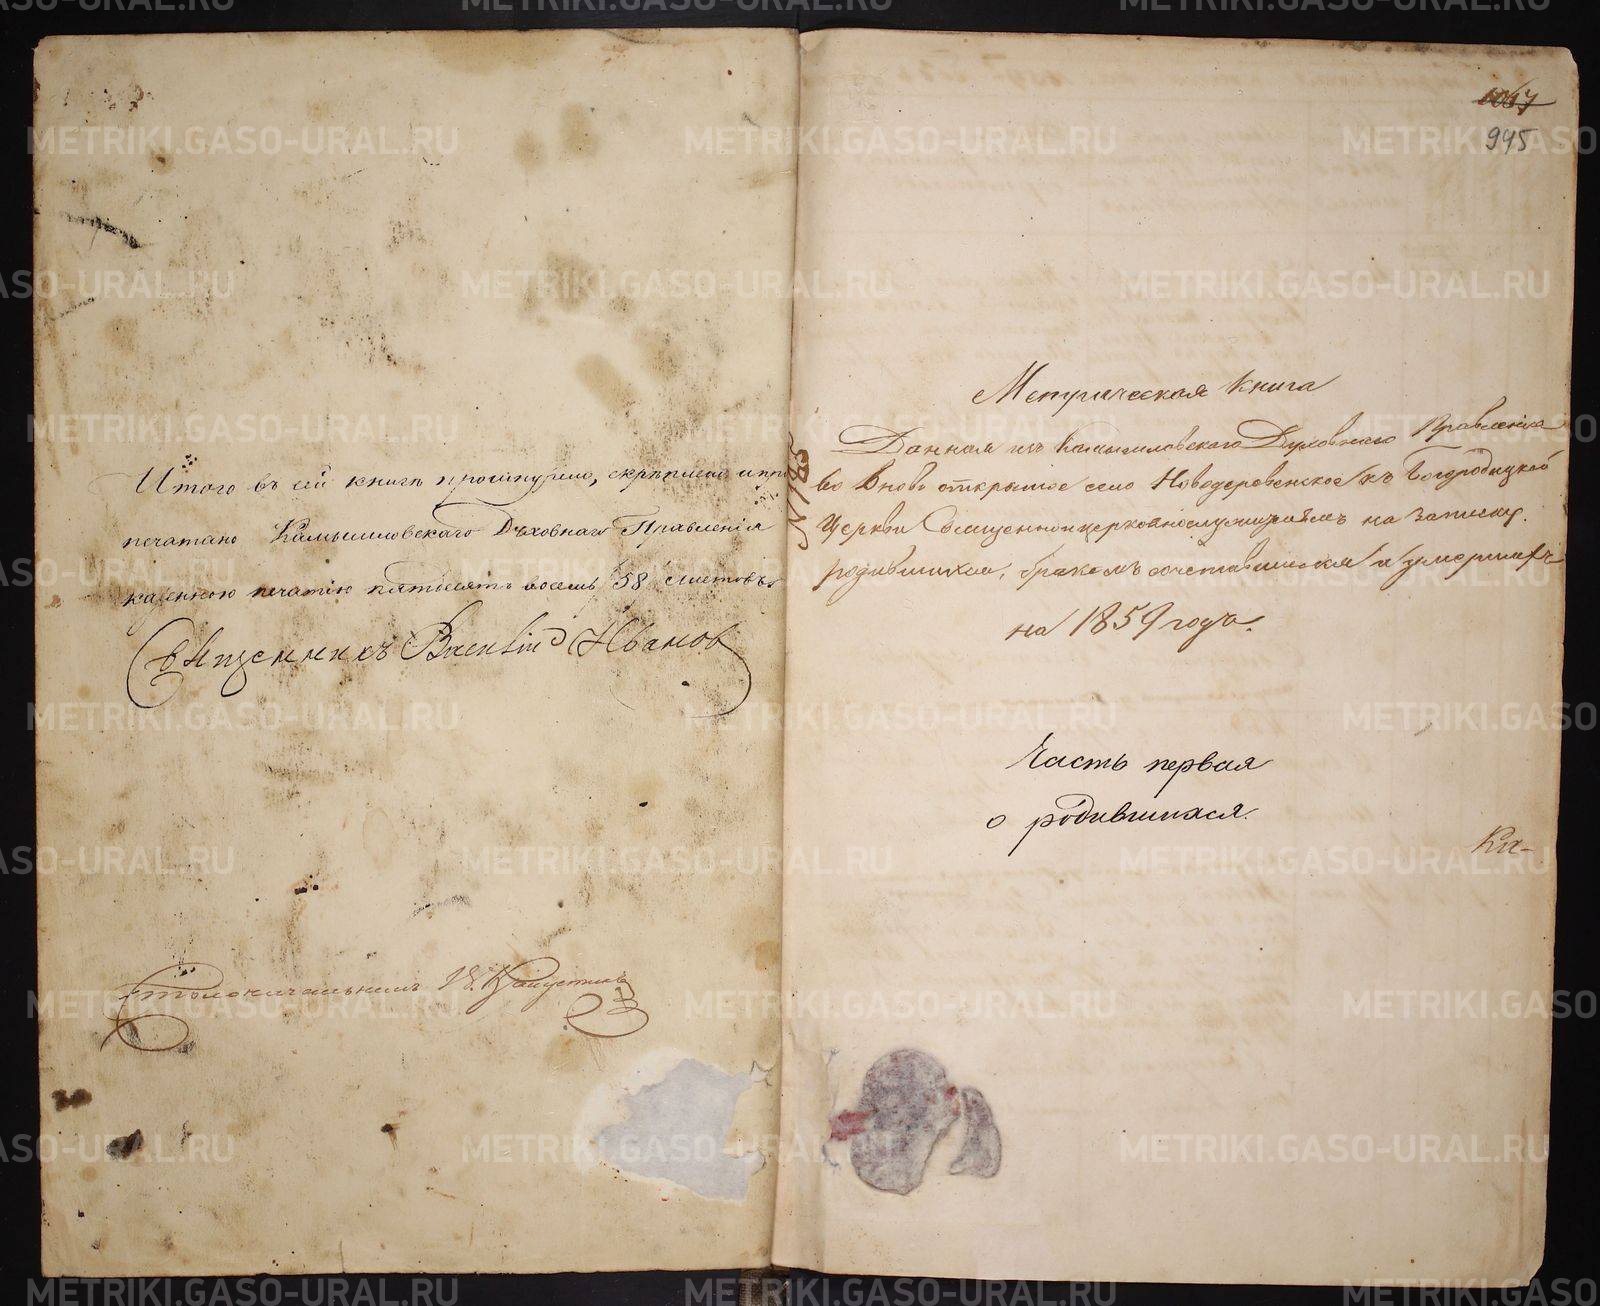 Итого въ сей книгѣ прошнурено, скрѣплено и при
печатано Камышловскаго Духовнаго Правленія
казенною печатію пятьдесятъ восемь 58 листовъ
Священникъ Василій Ивановъ
Столоначальникъ
1067
945
Метрическая Книга
Данная изъ Камышловскаго Духовнаго Правленія
во вновь открытое село Новодеревенское къ Богородицкой
Церкви Священноцерковнослужителямъ на записку
родившихся, бракомъ сочетавшихся и умершихъ
на 1859 годъ.
Часть первая
о родившихся.
METRIKI.GASO-URAL.RU